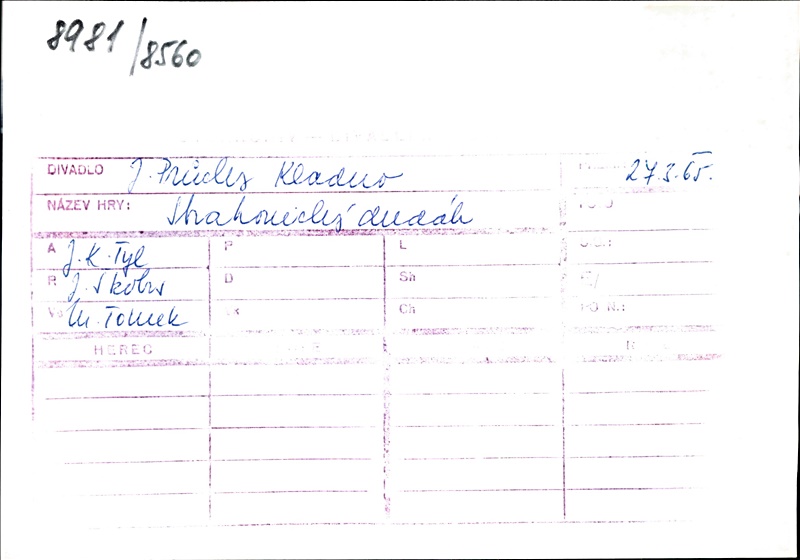 8981/8560
DIVADLO J. Průchy Kladno 27.3.65.
NÁZEV HRY: Strakonický dudák
A J. K. Tyl P L
R J. Skobr D Sh
M. Tomek Ch
HEREC